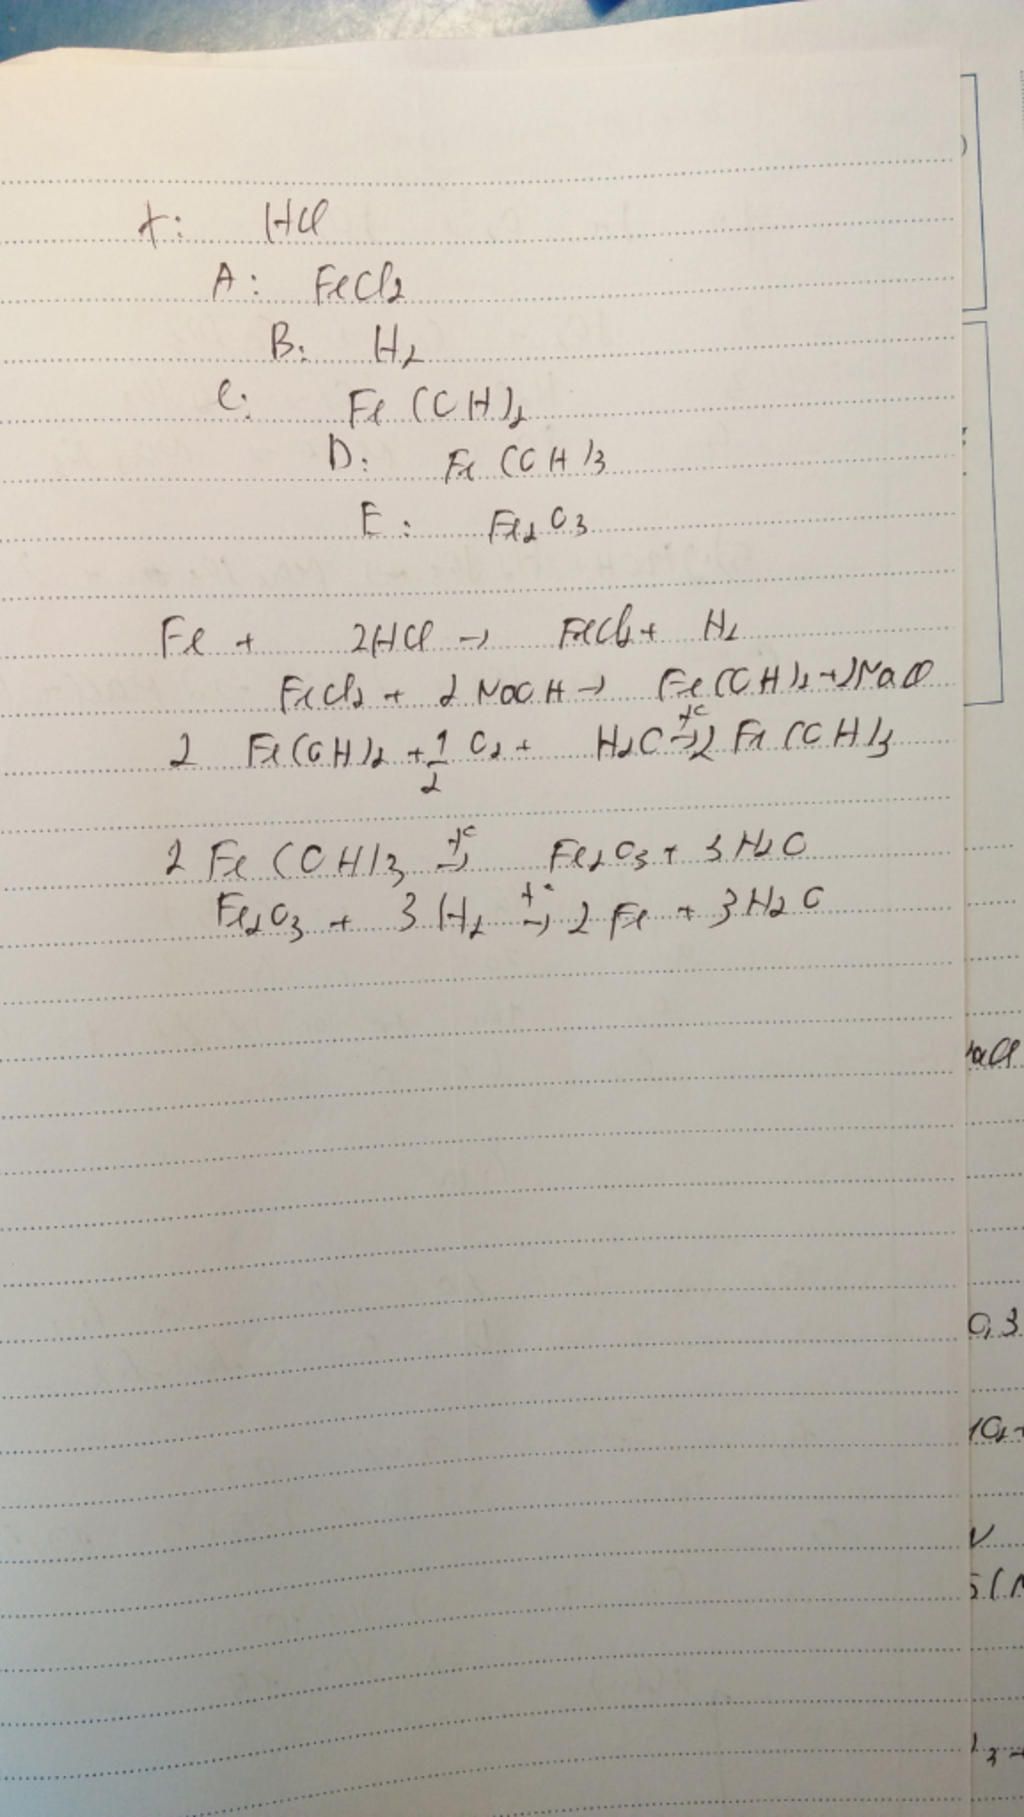 X: HCl
A: FeCl2
B: H2
C: Fe(OH)2
D: Fe(OH)3
E: Fe2O3
Fe + 2HCl → FeCl2 + H2
FeCl2 + 2NaOH → Fe(OH)2 + 2NaCl
2 Fe(OH)2 + 1/2 O2 + H2O t°→ 2 Fe(OH)3
2 Fe(OH)3 t°→ Fe2O3 + 3H2O
Fe2O3 + 3H2 t°→ 2Fe + 3H2O
aCl
0,3